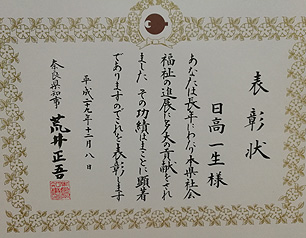 表彰状
日高一生様
あなたは長年にわたり本県社会
福祉の進展に多大の貢献をされ
ました その功績はまことに顕著
でありますのでこれを表彰します
平成二十九年十一月八日
奈良県知事 荒井正吾